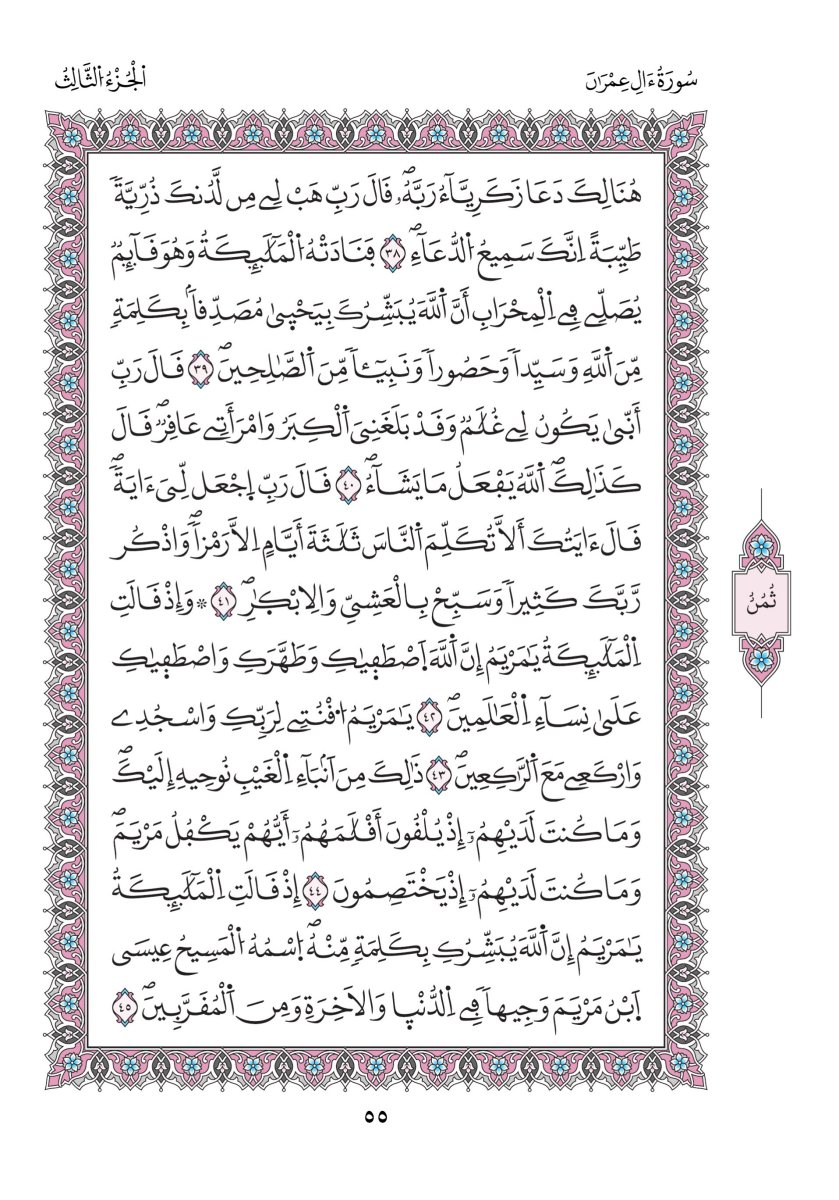 سُورَةُ ءَالِ عِمْرَٰنَ
اَ۬لْجُزْءُ اُ۬لثَّالِثُ
هُنَالِكَ دَعَا زَكَرِيَّآءُ رَبَّهُۥۖ قَالَ رَبِّ هَبْ لِے مِن لَّدُنكَ ذُرِّيَّةٗ
طَيِّبَةً اِنَّكَ سَمِيعُ اُ۬لدُّعَآءِۖ ٣٨ فَنَادَتْهُ اُ۬لْمَلَٰٓئِكَةُ وَهُوَ قَآئِمٞ
يُصَلِّے فِے اِ۬لْمِحْرَابِ أَنَّ اَ۬للَّهَ يُبَشِّرُكَ بِيَحْيۭيٰ مُصَدِّقاَۢ بِكَلِمَةٖ
مِّنَ اَ۬للَّهِ وَسَيِّداٗ وَحَصُوراٗ وَنَبِيٓـٔاٗ مِّنَ اَ۬لصَّٰلِحِينَۖ ٣٩ قَالَ رَبِّ
أَنّ۪يٰ يَكُونُ لِے غُلَٰمٞ وَقَدْ بَلَغَنِيَ اَ۬لْكِبَرُ وَامْرَأَتِے عَاقِرٞۖ قَالَ
كَذَٰلِكَۖ اَ۬للَّهُ يَفْعَلُ مَا يَشَآءُۖ ٤٠ قَالَ رَبِّ اِ۪جْعَل لِّيَ ءَايَةٗۖ
قَالَ ءَايَتُكَ أَلَّا تُكَلِّمَ اَ۬لنَّاسَ ثَلَٰثَةَ أَيَّامٍ اِلَّا رَمْزاٗۖ وَاذْكُر
رَّبَّكَ كَثِيراٗ وَسَبِّحْ بِالْعَشِيِّ وَالِابْكٰ۪رِۖ ٤١ ۞ وَإِذْ قَالَتِ
اِ۬لْمَلَٰٓئِكَةُ يَٰمَرْيَمُ إِنَّ اَ۬للَّهَ اَ۪صْطَف۪يٰكِ وَطَهَّرَكِ وَاصْطَف۪يٰكِ
عَلَىٰ نِسَآءِ اِ۬لْعَٰلَمِينَۖ ٤٢ يَٰمَرْيَمُ اُ۟قْنُتِے لِرَبِّكِ وَاسْجُدِے
وَارْكَعِے مَعَ اَ۬لرَّٰكِعِينَۖ ٤٣ ذَٰلِكَ مِنَ اَنۢبَآءِ اِ۬لْغَيْبِ نُوحِيهِ إِلَيْكَۖ
وَمَا كُنتَ لَدَيْهِمُۥٓ إِذْ يُلْقُونَ أَقْلَٰمَهُمُۥٓ أَيُّهُمْ يَكْفُلُ مَرْيَمَۖ
وَمَا كُنتَ لَدَيْهِمُۥٓ إِذْ يَخْتَصِمُونَ ٤٤ إِذْ قَالَتِ اِ۬لْمَلَٰٓئِكَةُ
يَٰمَرْيَمُ إِنَّ اَ۬للَّهَ يُبَشِّرُكِ بِكَلِمَةٖ مِّنْهُۖ اُ۪سْمُهُ اُ۬لْمَسِيحُ عِيسَى
اَ۪بْنُ مَرْيَمَ وَجِيهاٗ فِے اِ۬لدُّنْي۪ا وَالَاخِرَةِ وَمِنَ اَ۬لْمُقَرَّبِينَۖ ٤٥
ثُمُنُ
٥٥